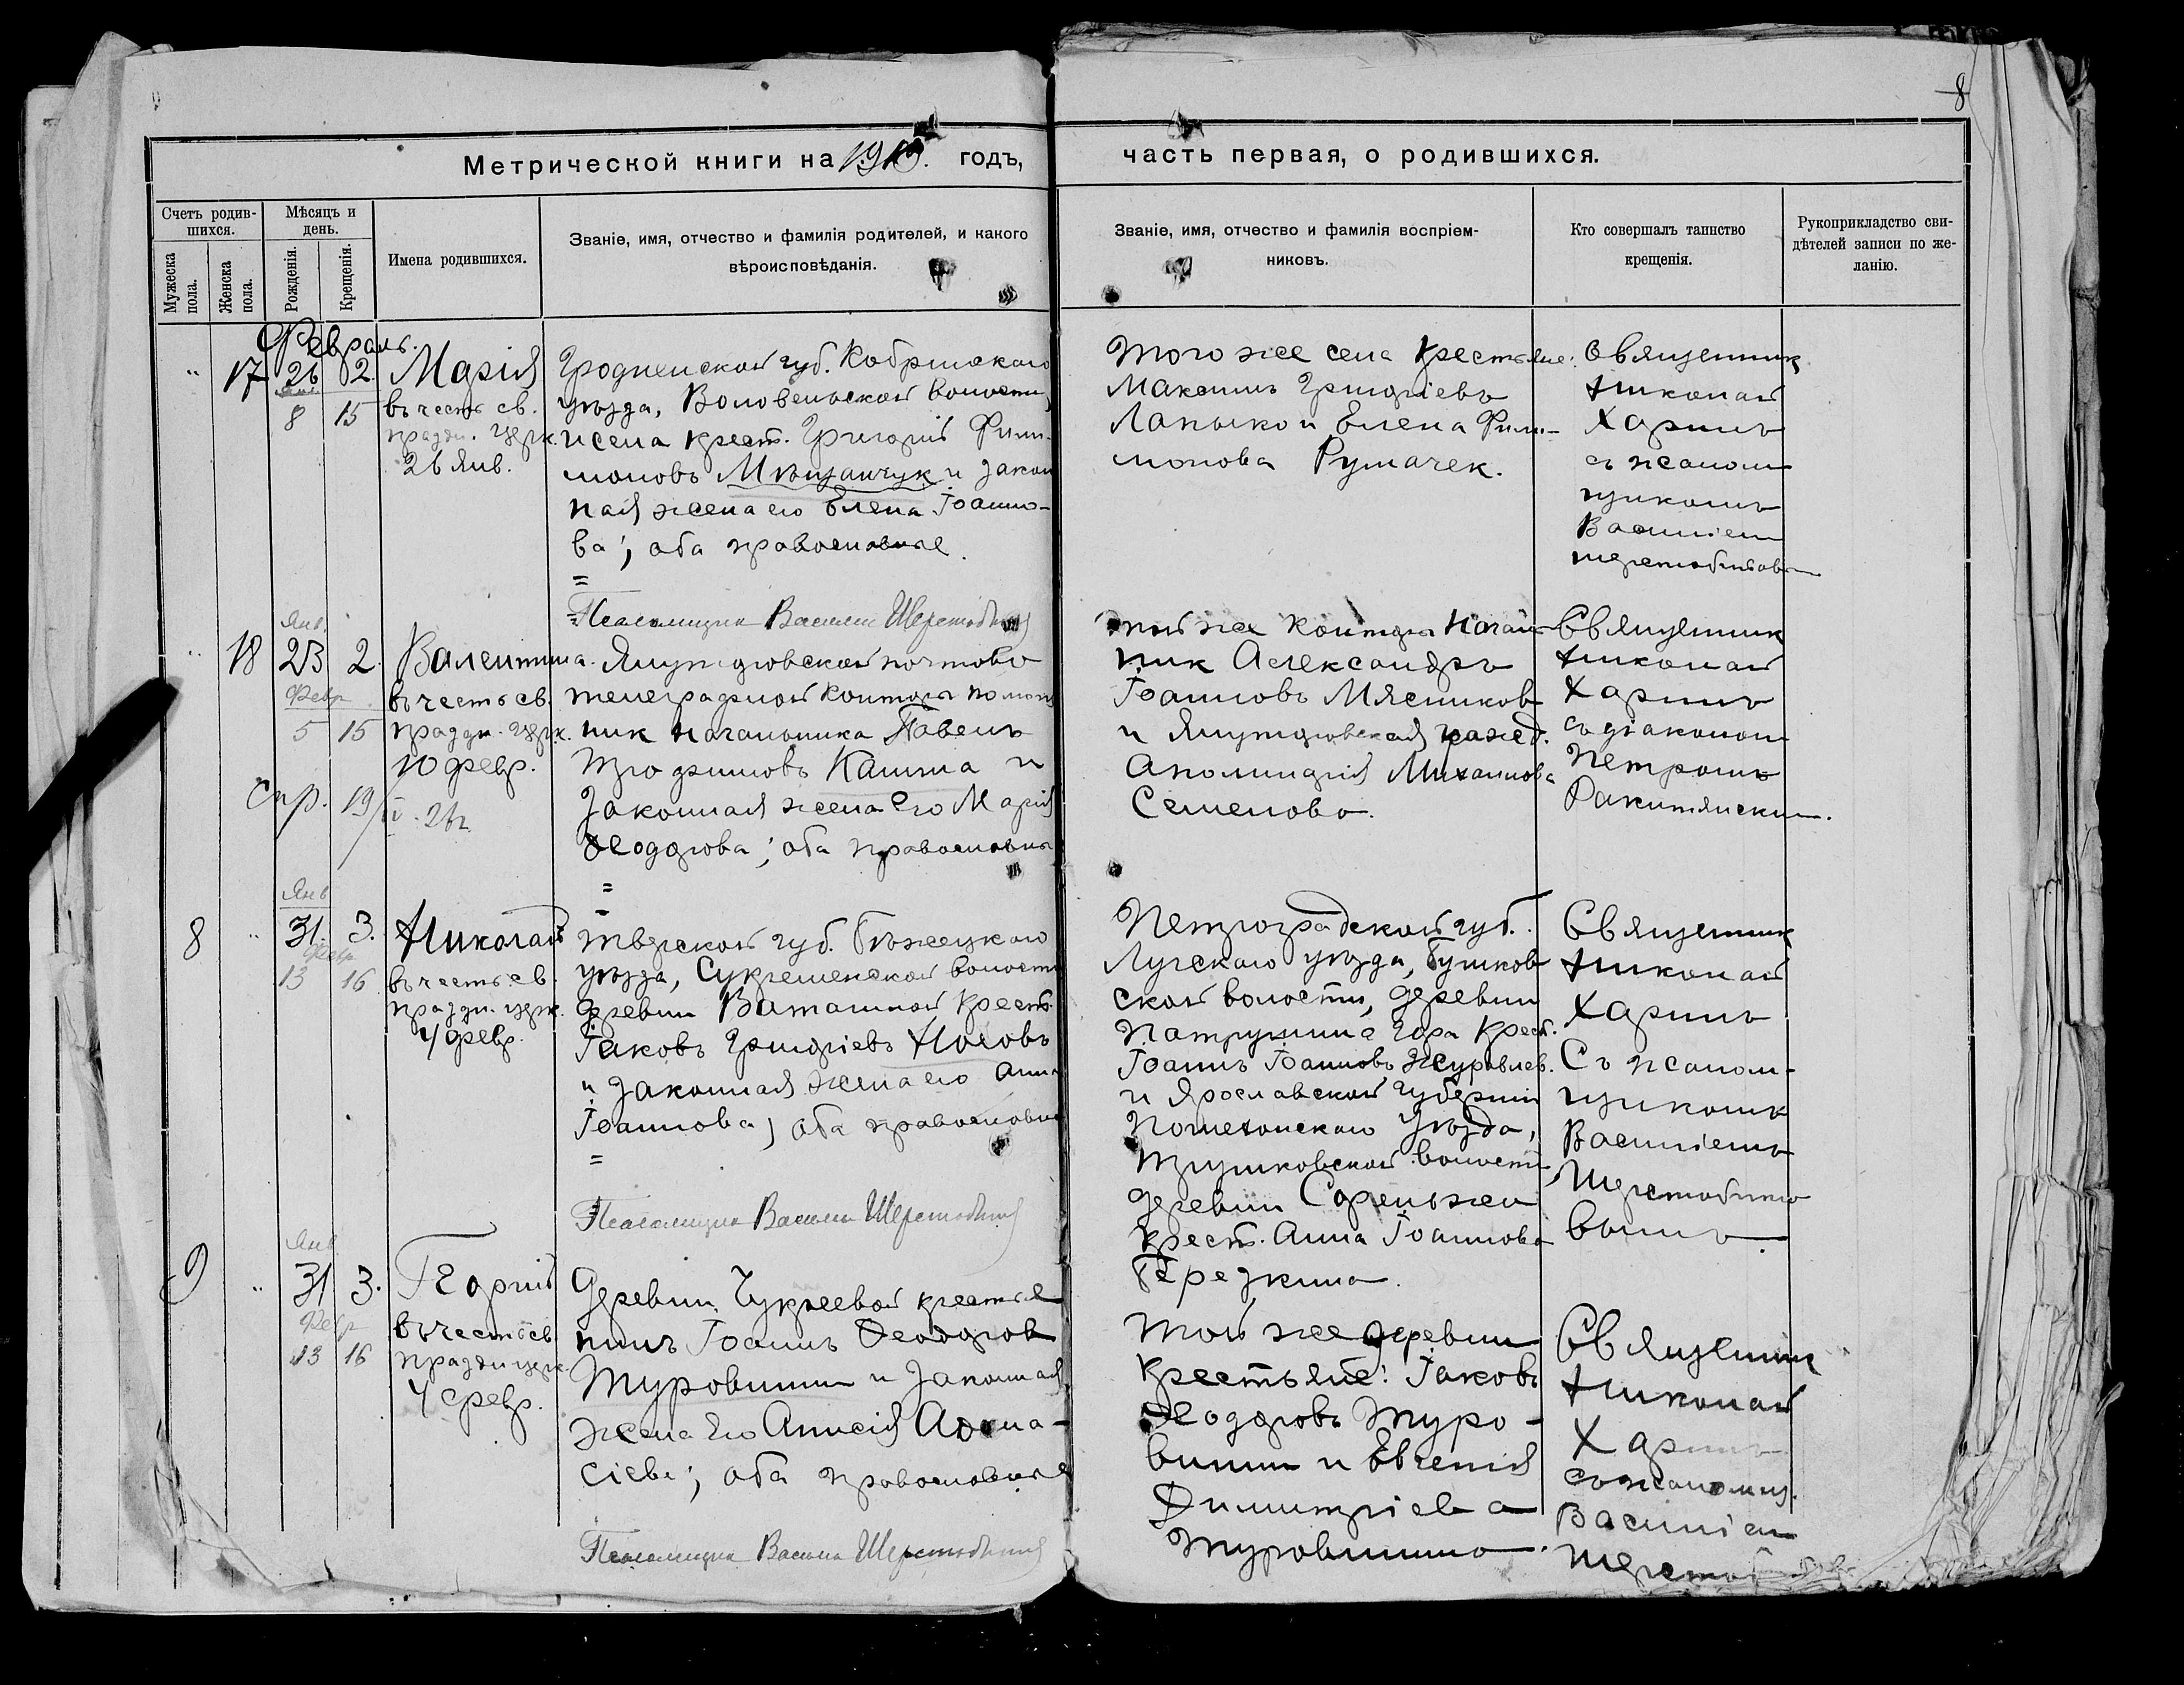 8
Метрической книги на 1919. годъ,
часть первая, о родившихся.
Счетъ родив-
шихся.
Мужеска
пола.
Женска
пола.
Мѣсяцъ и
день.
Рожденія.
Крещенія.
Имена родившихся.
Званіе, имя, отчество и фамилія родителей, и какого
вѣроисповѣданія.
Званіе, имя, отчество и фамилія воспріем-
никовъ.
Кто совершалъ таинство
крещенія.
Рукоприкладство сви-
дѣтелей записи по же-
ланію.
Февраль.
17
26 2
8 15
Марія
въ честь св.
праздн. церк.
26 Янв.
Гродненской губ. Кобринскаго
уѣзда, Воловельской волости,
и села крест. Григорій Фили-
моновъ Мѣщанчук и закон
ная жена его Елена Іоанно-
ва; оба православные.
Псаломщик Василий Шерстобитов
Того же села крестьяне:
Максимъ Григоріевъ
Лапыко и Елена Фили-
монова Румачек.
Священник
Николай
Харинъ
съ псалом
щикомъ
Василіем
Шерстобитовы
18
Янв.
23 2.
Февр.
5 15
Валентина.
въ честь св.
праздн. церк.
10 февр.
Спр. 19/IV-26г.
Ялуторовской почтово
телеграфной конторы помощ
ник начальника Павелъ
Трофимовъ Капша и
законная жена его Марія
Феодорова; оба православны
той же конторы Начал
ник Александръ
Іоанновъ Мясников
и Ялуторовская гражд.
Аполинарія Михаилова
Семенова.
Священник
Николай
Харинъ
съ діаконом
Петромъ
Ракитянским.
8
Янв
31. 3.
Февр
13 16
Николай
въ честь св.
праздн. церк.
4 февр.
Тверской губ. Бѣжецкаго
уѣзда, Сукроменской волости
деревни Ваташной крест.
Іаковъ Григоріевъ Носовъ
и законная жена его Анна
Іоаннова; оба православные
Псаломщик Василий Шерстобитов
Петроградской губ.
Лугскаго уѣзда, Бушков
ской волости, деревни
Патрушина Гора крест.
Іоаннъ Іоанновъ Журавлев.
и Ярославской губерніи
Пошехонскаго уѣзда,
Трушковской волости,
деревни
крест. Анна Іоаннова
Березкина.
Священник
Николай
Харинъ
Съ псалом-
щикомъ
Василіемъ
Шерстобито
вымъ
9
Янв
31 3.
Февр
13 16
Георгій
въ честь св.
праздн церк.
4 февр.
Деревни Чукреевой крестья
нинъ Іоаннъ Феодоров
Туровинин и законная
жена его Анисія Афана-
сіева; оба православные
Псаломщик Василий Шерстобитов
той же деревни
крестьяне: Іаковъ
Феодоровъ Туро-
винин и Евгенія
Димитріева
Туровинина.
Священник
Николай
Харинъ
съ псаломщ.
Василіем
Шерстобитов